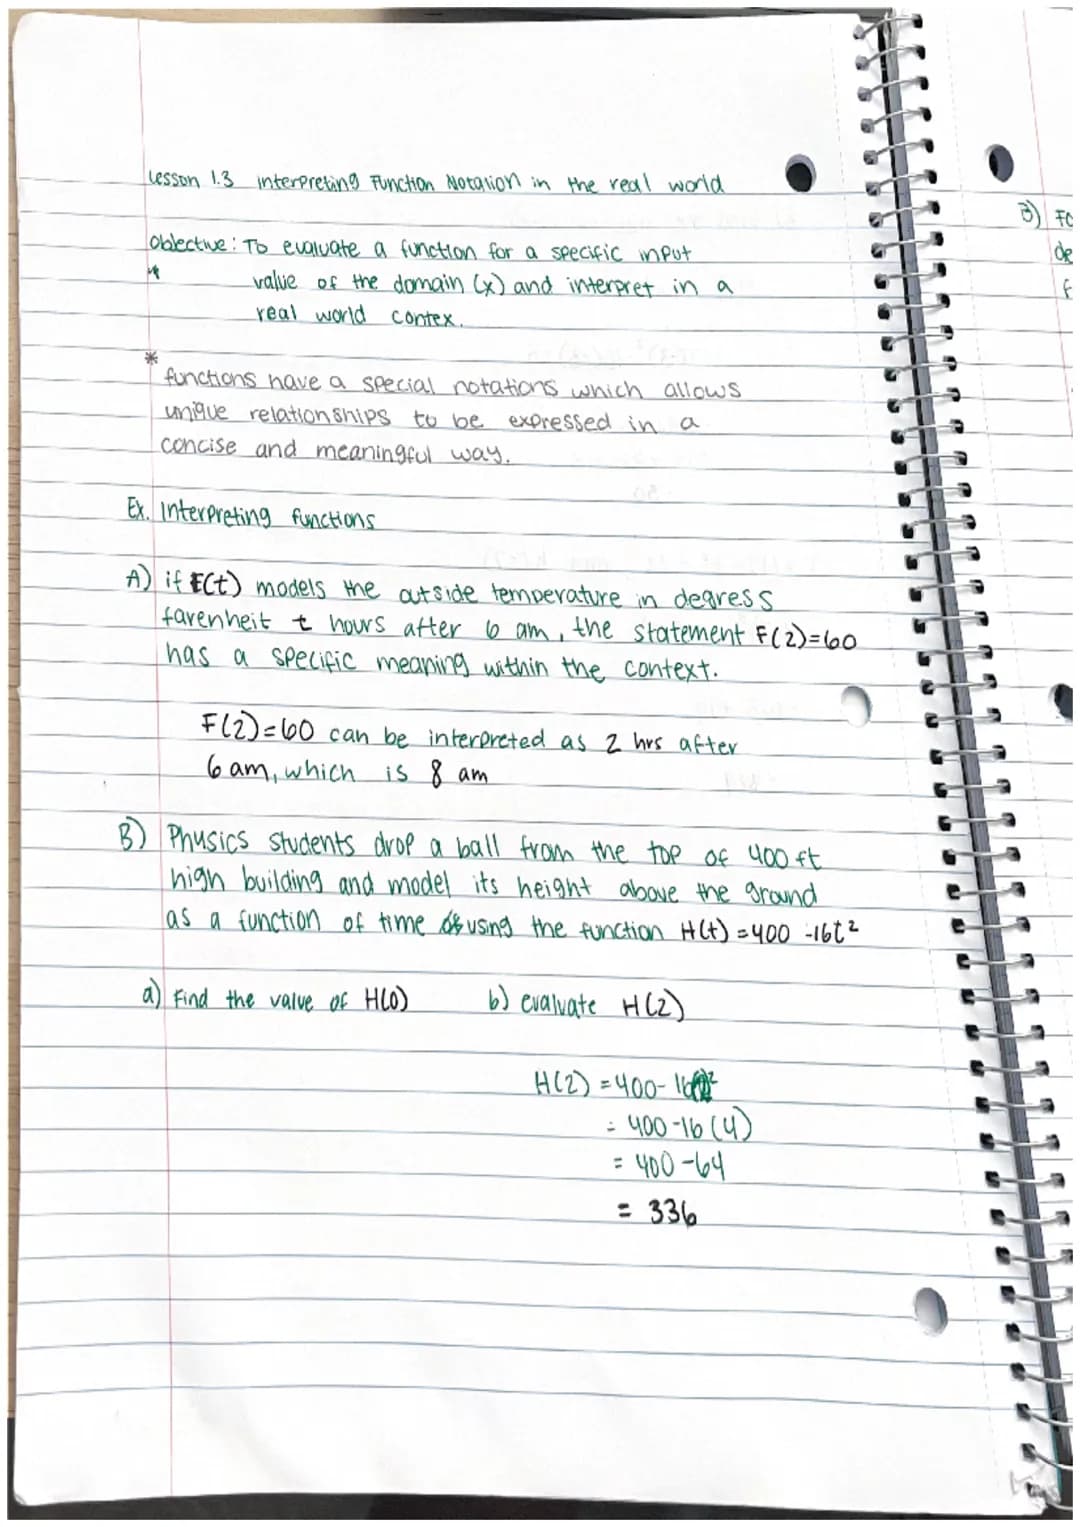 Lesson 1.3 interpreting Function Notation in the real world
Objective: To evaluate a function for a specific input
value of the domain (x) and interpret in a
real world contex.
*
functions have a special notations which allows
unique relationships to be expressed in a
concise and meaningful way.
Ex. Interpreting functions
A) if F(t) models the outside temperature in degress
farenheit t hours after 6 am, the statement F(2)=60
has a specific meaning within the context.
F(2)=60 can be interpreted as 2 hrs after
6 am, which is 8 am
B) Physics students drop a ball from the top of 400 ft
high building and model its height above the ground
as a function of time using the function H(t) = 400 -16t²
a) Find the value of H(0) b) evaluate H(2)
H(2) = 400-16(2)²
= 400-16(4)
= 400-64
= 336
3) Fo
de
f